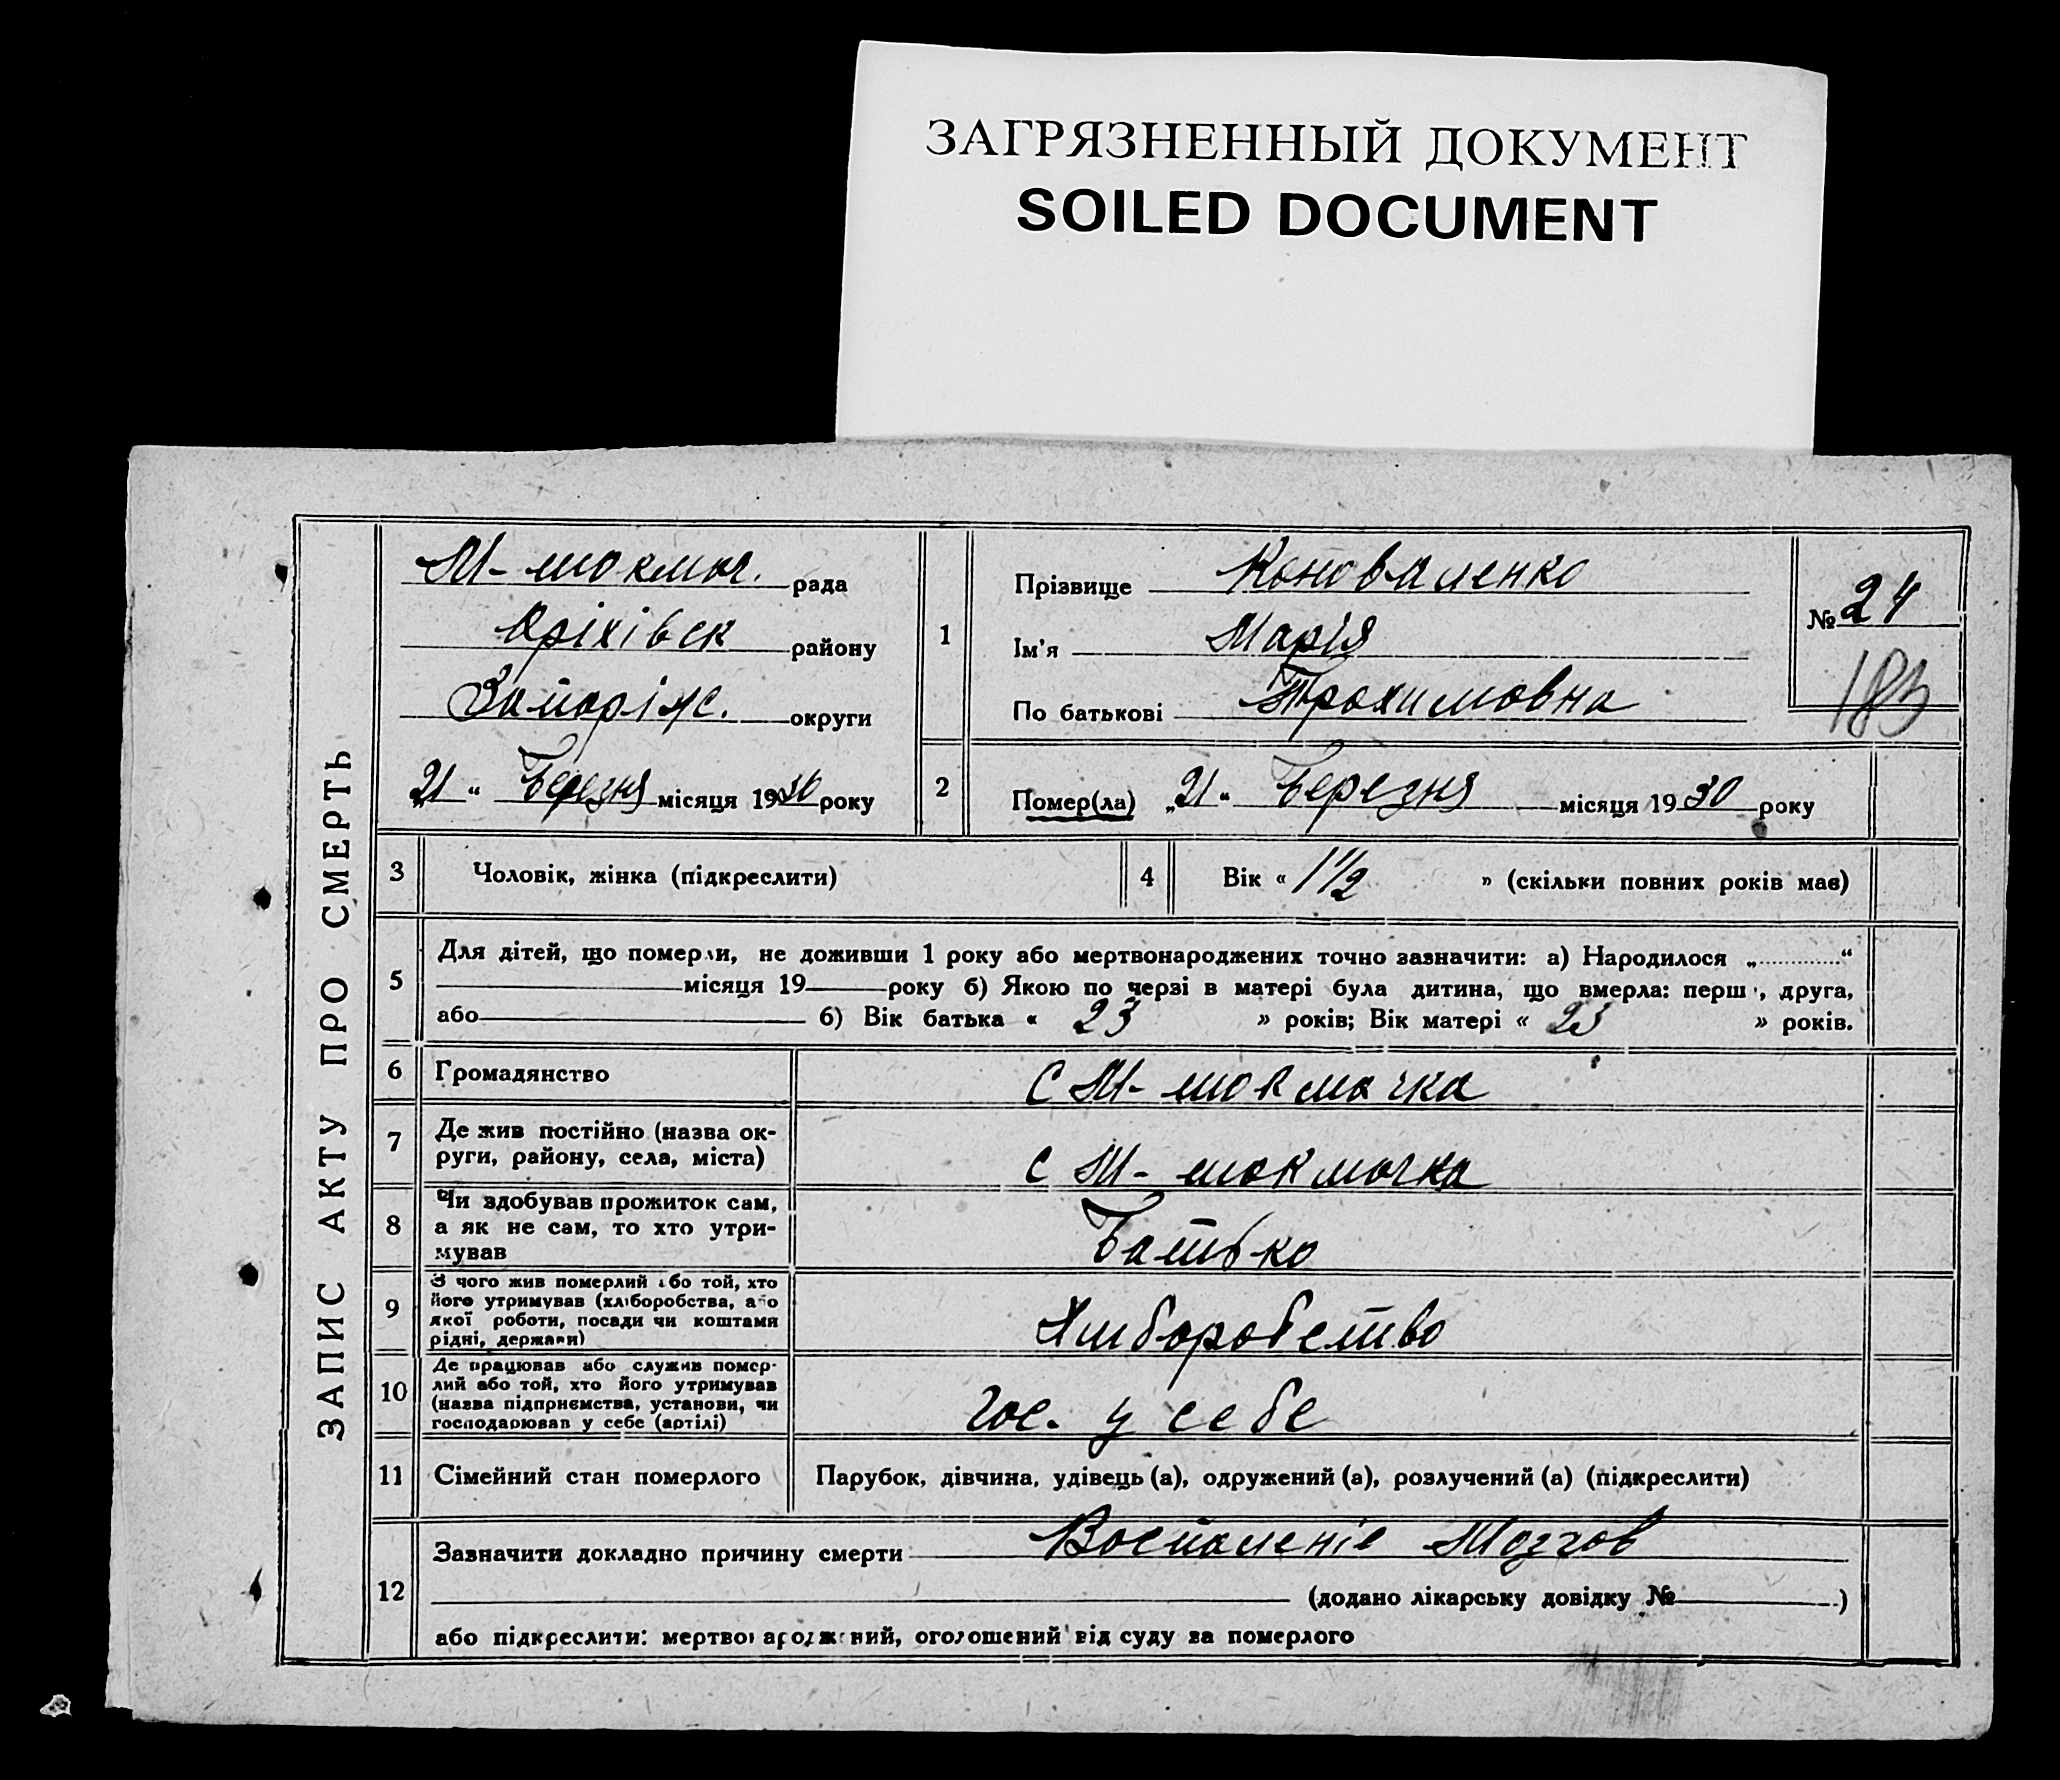 ЗАГРЯЗНЕННЫЙ ДОКУМЕНТ
SOILED DOCUMENT
ЗАПИС АКТУ ПРО СМЕРТЬ
М-токмач. рада
Оріхівск району
Запоріж. округи
„21“ Березня місяця 1930 року
1
Прізвище Коноваленко
Ім'я Марія
По батькові Трохимовна
№ 24
183
2 Помер(ла) „21“ Березня місяця 1930 року
3 Чоловік, жінка (підкреслити)
4 Вік « 1 1/2 » (скільки повних років має)
5
Для дітей, що померли, не доживши 1 року або мертвонароджених точно зазначити: а) Народилося „............“
місяця 19 року б) Якою по черзі в матері була дитина, що вмерла: перш, друга,
або б) Вік батька « 23 » років; Вік матері « 23 » років.
6 Громадянство с М-токмачка
7
Де жив постійно (назва ок-
руги, району, села, міста) с М-токмачка
8
Чи здобував прожиток сам,
а як не сам, то хто утри-
мував Батько
9
З чого жив померлий або той, хто
його утримував (хліборобства, або
якої роботи, посади чи коштами
рідні, держави) Хліборобство
10
Де працював або служив помер-
лий або той, хто його утримував
(назва підприємства, установи, чи
господарював у себе (артілі) гос. у себе
11 Сімейний стан померлого Парубок, дівчина, удівець (а), одружений (а), розлучений (а) (підкреслити)
12
Зазначити докладно причину смерти Воспаленіе Мозгов
(додано лікарську довідку № )
або підкреслити: мертвонароджений, оголошений від суду за померлого